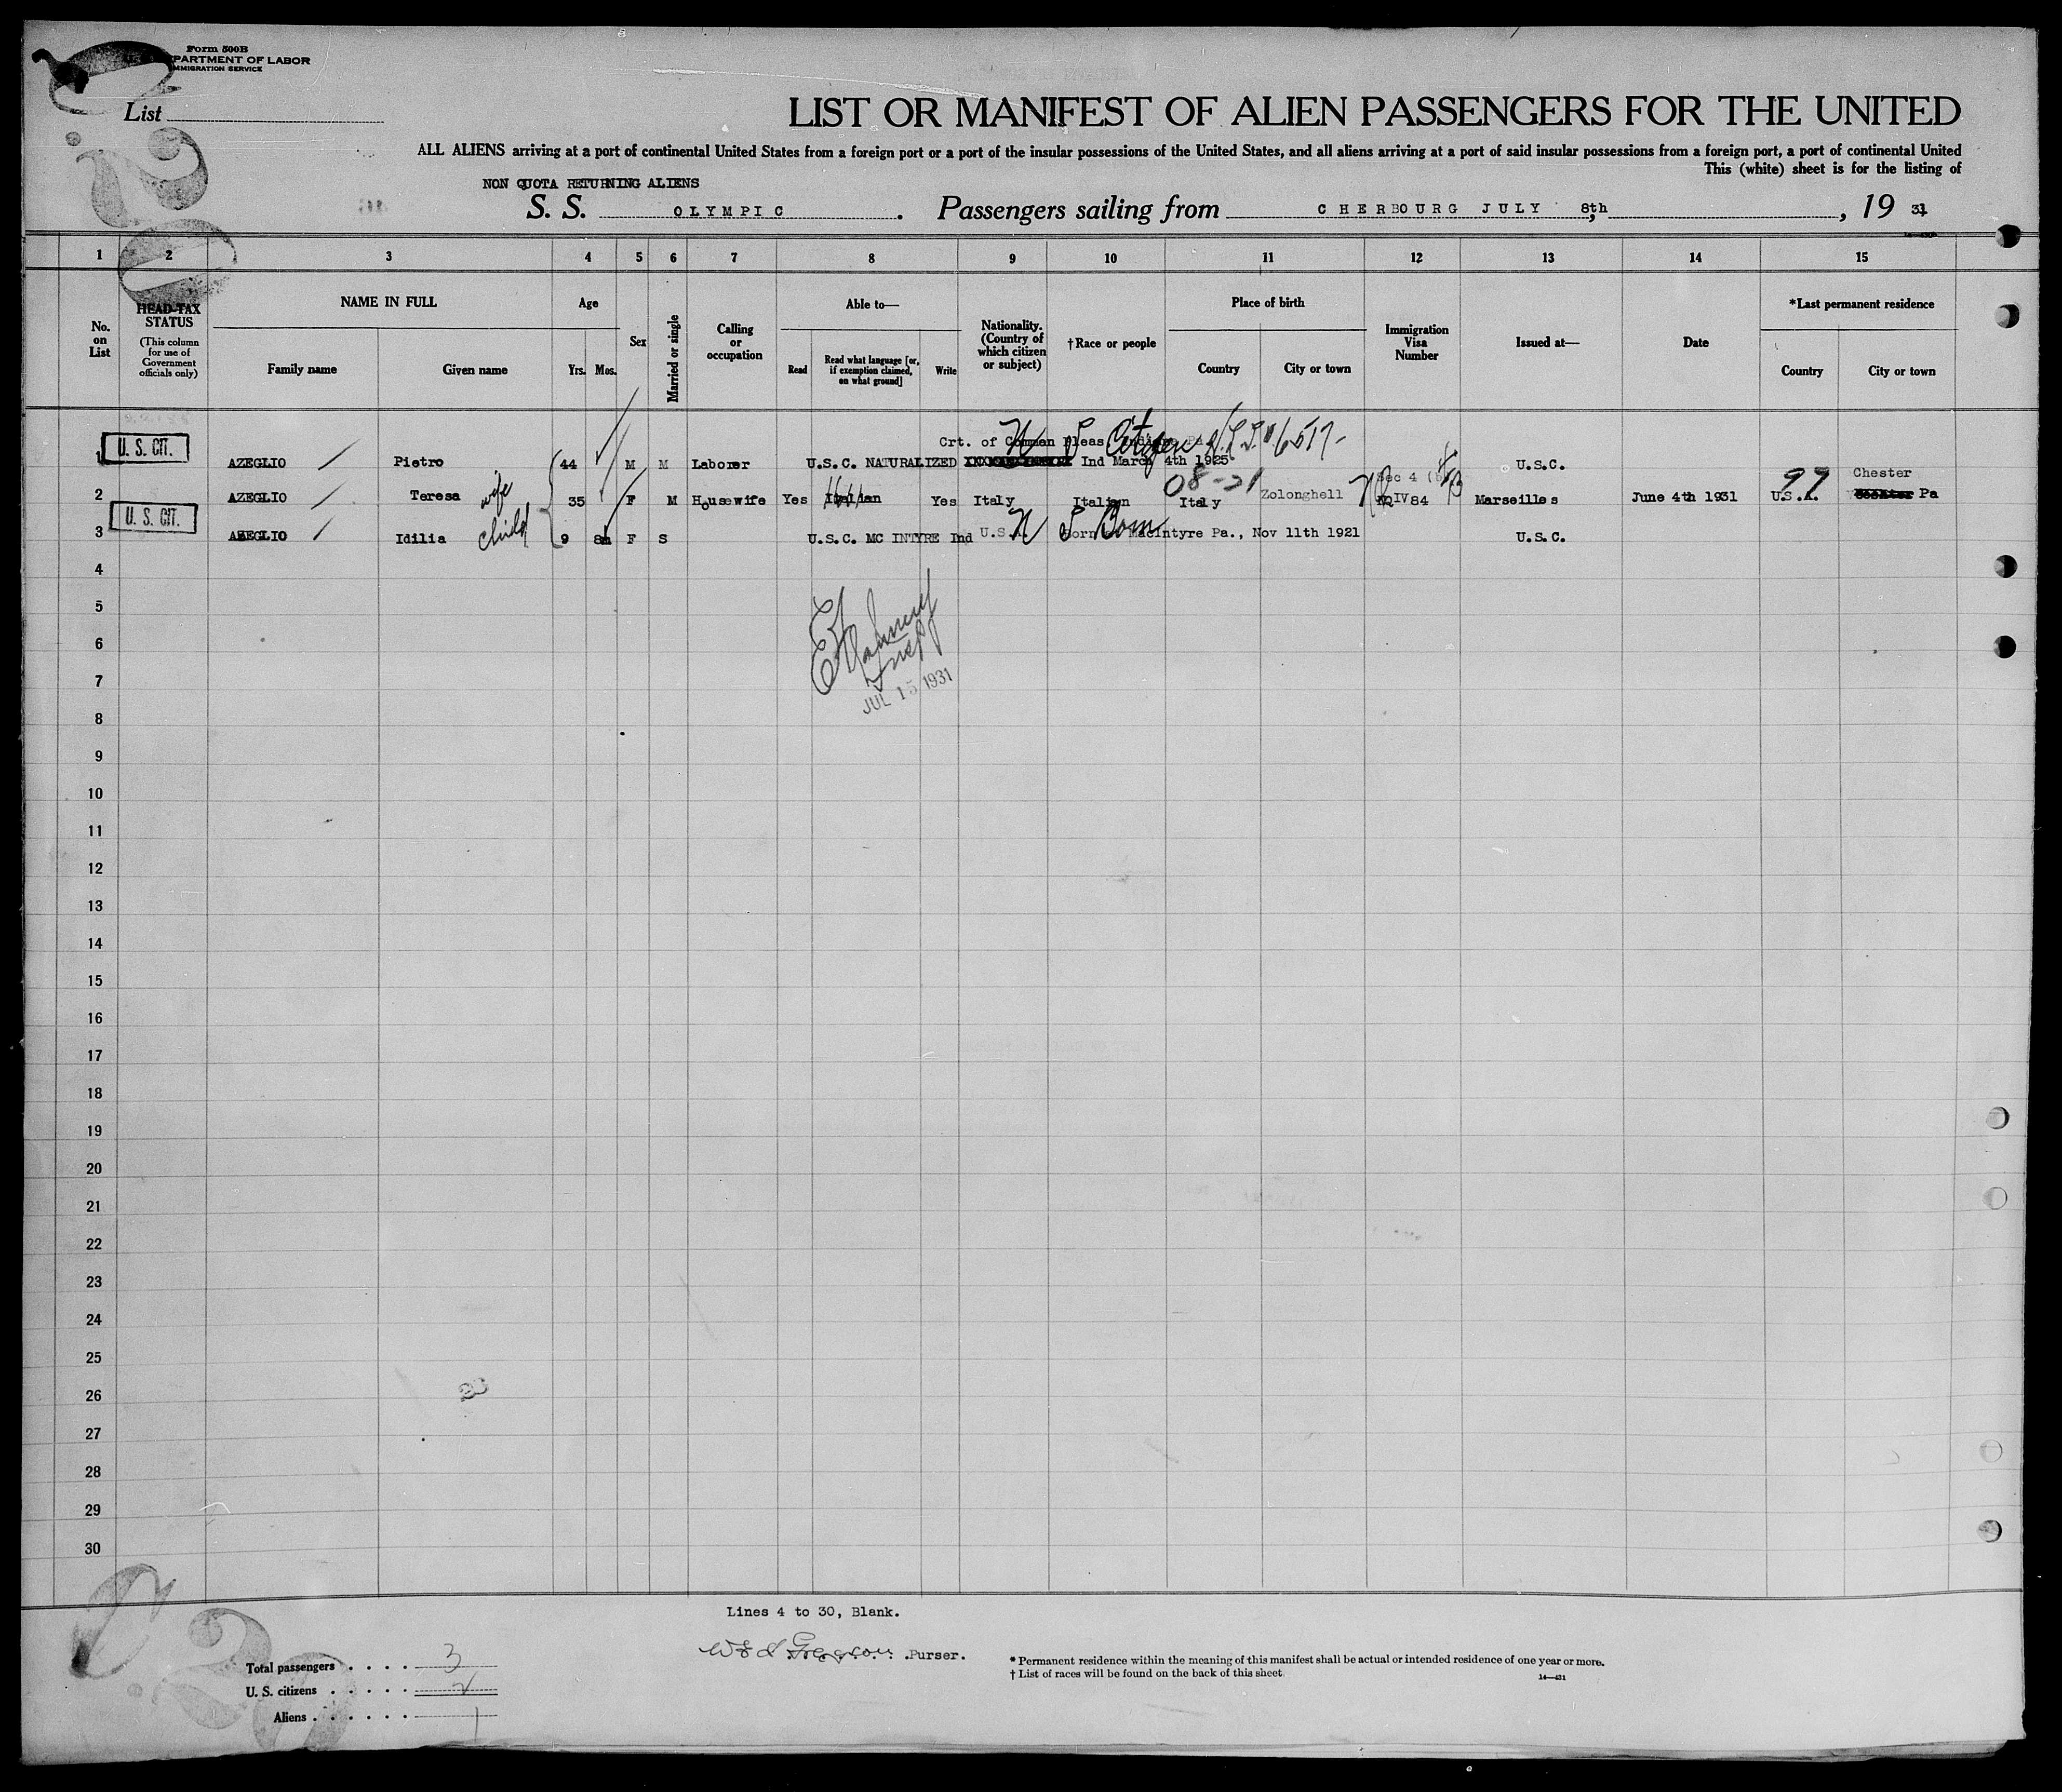 Form 500B
PARTMENT OF LABOR
IMMIGRATION SERVICE
List
LIST OR MANIFEST OF ALIEN PASSENGERS FOR THE UNITED
ALL ALIENS arriving at a port of continental United States from a foreign port or a port of the insular possessions of the United States, and all aliens arriving at a port of said insular possessions from a foreign port, a port of continental United
This (white) sheet is for the listing of
NON QUOTA RETURNING ALIENS
S. S. OLYMPIC . Passengers sailing from CHERBOURG JULY 8th, , 19 31
1 2 3 4 5 6 7 8 9 10 11 12 13 14 15
No. on List
HEAD-TAX STATUS
(This column for use of Government officials only)
NAME IN FULL
Family name
Given name
Age
Yrs. Mos.
Sex
Married or single
Calling or occupation
Able to—
Read
Read what language [or, if exemption claimed, on what ground]
Write
Nationality. (Country of which citizen or subject)
†Race or people
Place of birth
Country
City or town
Immigration Visa Number
Issued at—
Date
*Last permanent residence
Country
City or town
Crt. of Common Pleas Citizen
1 U. S. CIT. AZEGLIO Pietro 44 M M Laborer U.S.C. NATURALIZED Ind March 4th 1925 U.S.C.
08-21 Sec 4 97 Chester
2 AZEGLIO Teresa wife 35 F M Housewife Yes Italian Yes Italy Italian Italy Zolonghell IV 84 Marseilles June 4th 1931 U.S.A. Pa
U. S. CIT.
3 AZEGLIO Idilia child 9 8m F S U.S.C. MC INTYRE Ind U.S. Born MacIntyre Pa., Nov 11th 1921 U.S.C.
4
5
6
Insp
7
JUL 15 1931
8
9
10
11
12
13
14
15
16
17
18
19
20
21
22
23
24
25
26
27
28
29
30
Lines 4 to 30, Blank.
Purser.
Total passengers . . . . 3
U. S. citizens . . . . . 2
Aliens . . . . . . 1
* Permanent residence within the meaning of this manifest shall be actual or intended residence of one year or more.
† List of races will be found on the back of this sheet.
14—431